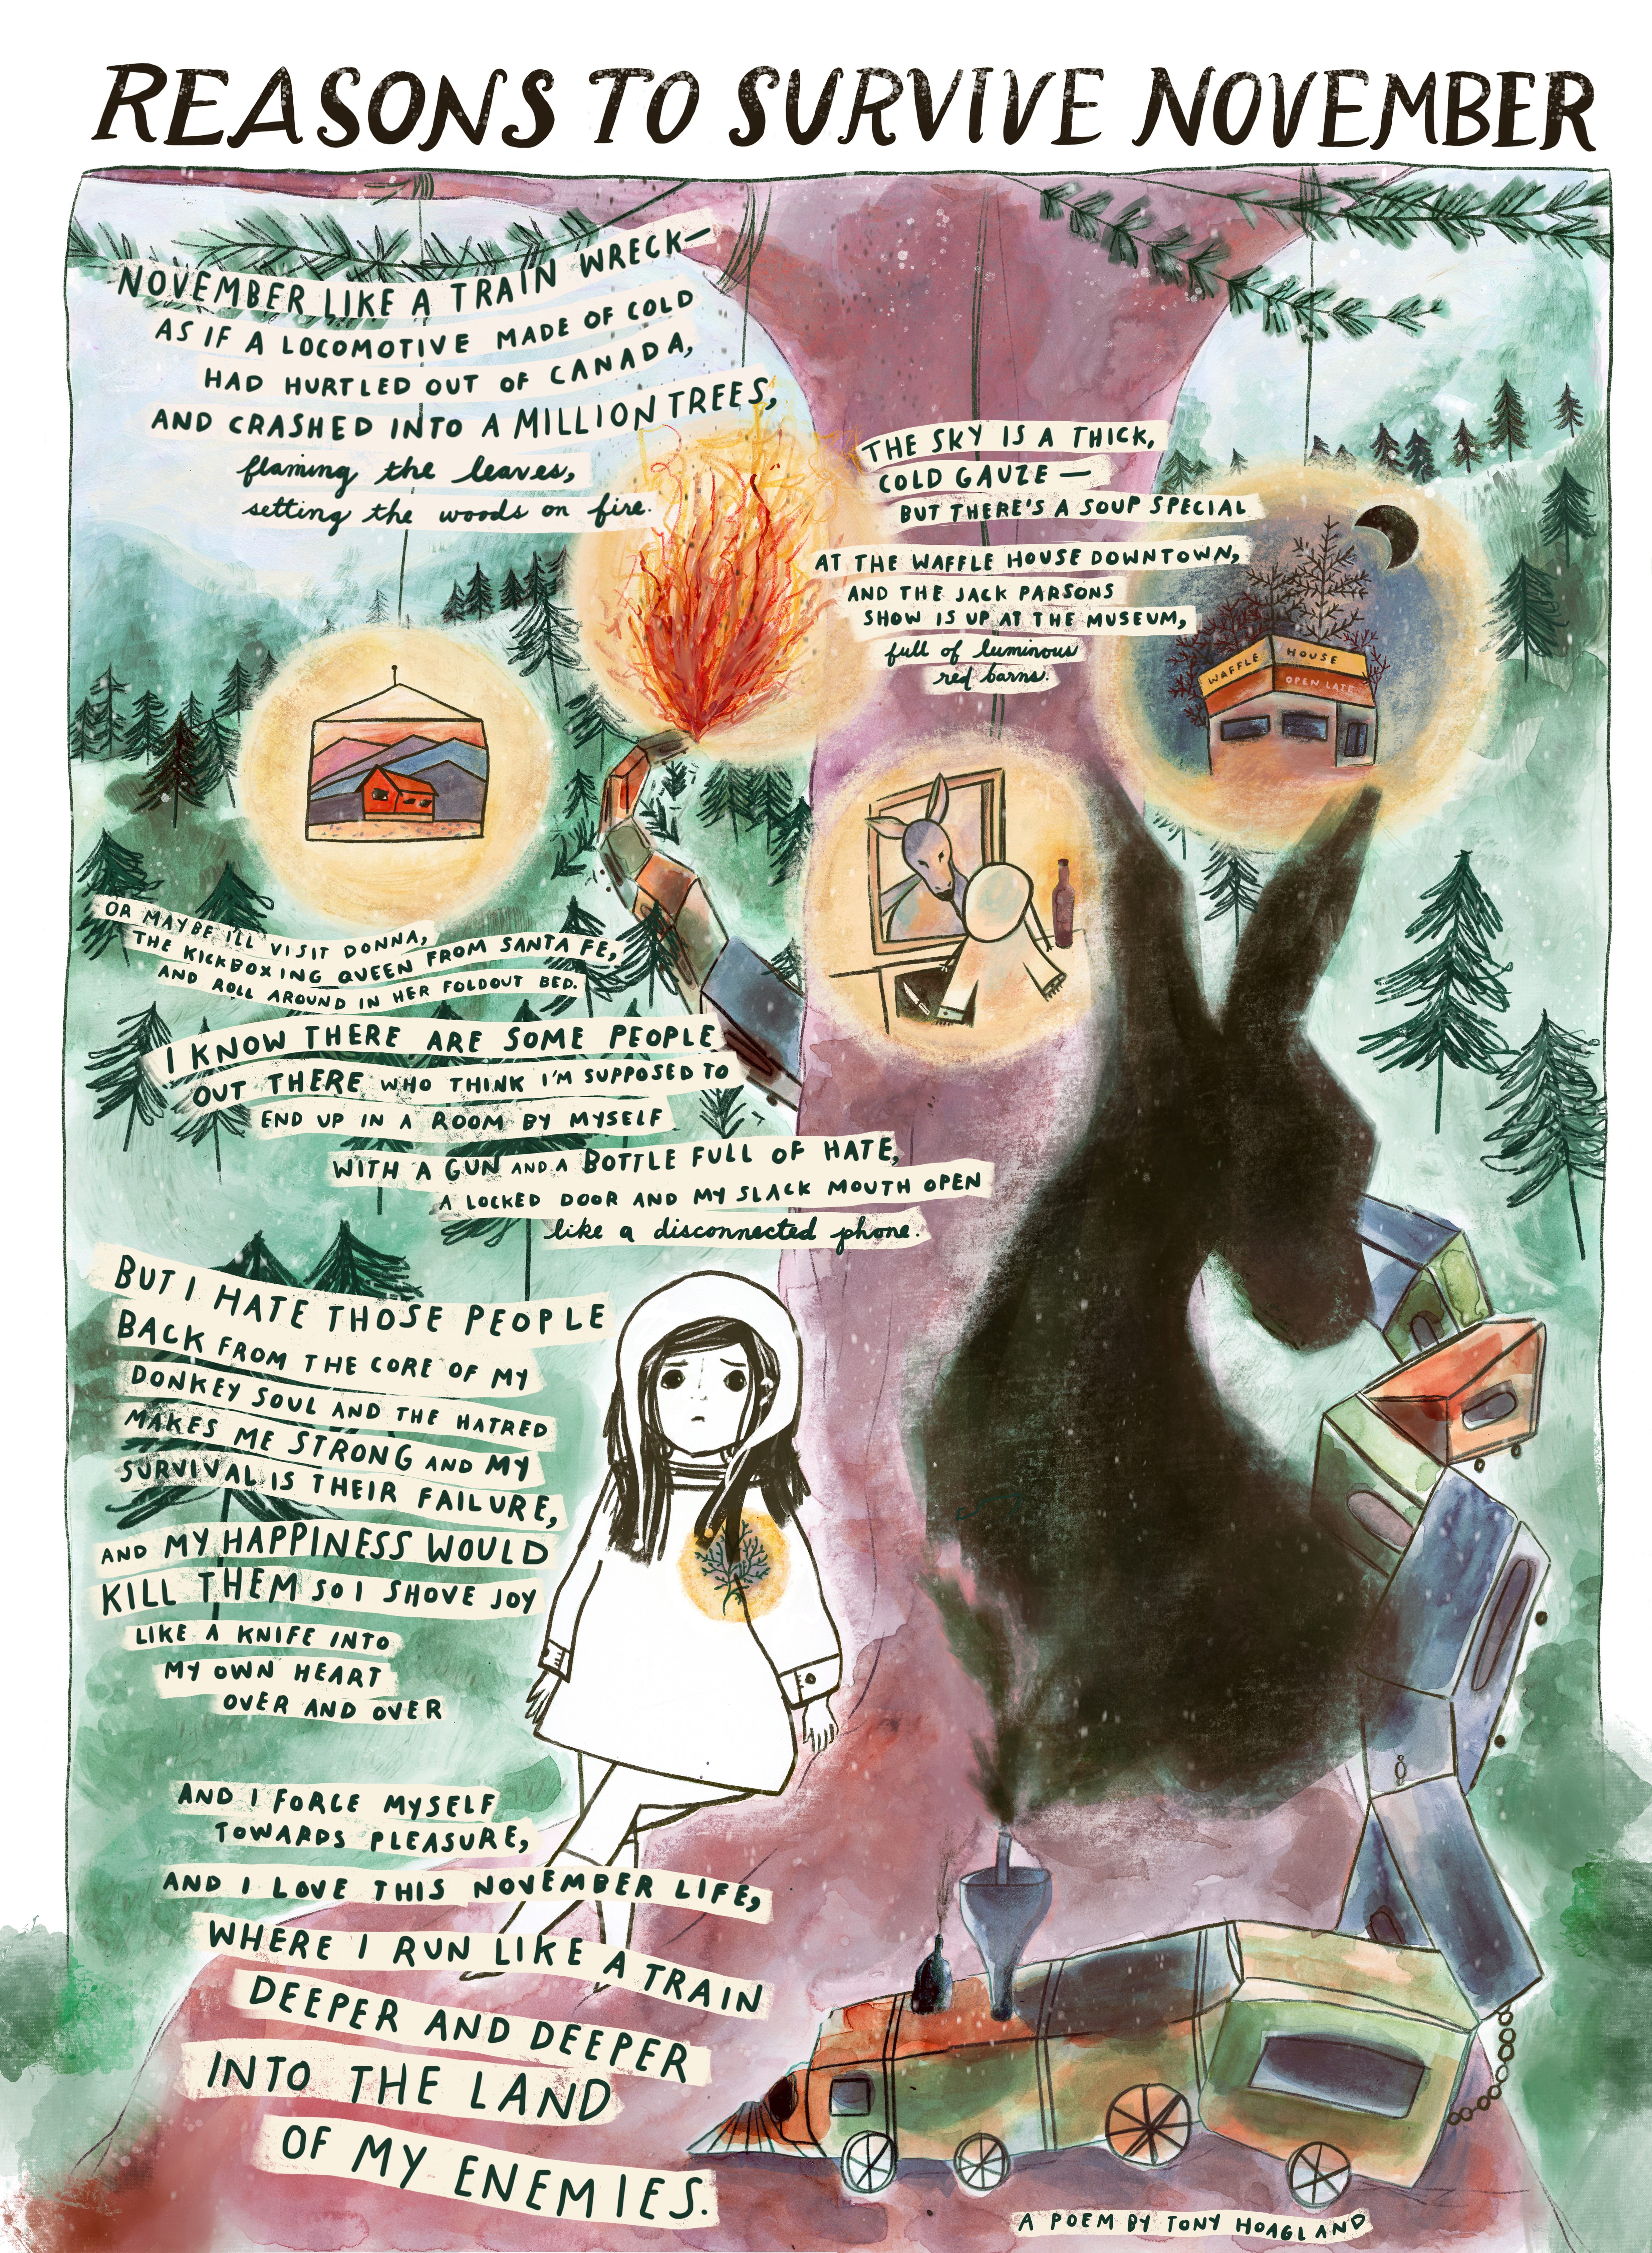 REASONS TO SURVIVE NOVEMBER
NOVEMBER LIKE A TRAIN WRECK—
AS IF A LOCOMOTIVE MADE OF COLD
HAD HURTLED OUT OF CANADA,
AND CRASHED INTO A MILLION TREES,
flaming the leaves,
setting the woods on fire.
THE SKY IS A THICK,
COLD GAUZE—
BUT THERE'S A SOUP SPECIAL
AT THE WAFFLE HOUSE DOWNTOWN,
AND THE JACK PARSONS
SHOW IS UP AT THE MUSEUM,
full of luminous
red barns.
WAFFLE HOUSE
OPEN LATE
OR MAYBE I'LL VISIT DONNA,
THE KICKBOXING QUEEN FROM SANTA FE,
AND ROLL AROUND IN HER FOLDOUT BED.
I KNOW THERE ARE SOME PEOPLE
OUT THERE WHO THINK I'M SUPPOSED TO
END UP IN A ROOM BY MYSELF
WITH A GUN AND A BOTTLE FULL OF HATE,
A LOCKED DOOR AND MY SLACK MOUTH OPEN
like a disconnected phone.
BUT I HATE THOSE PEOPLE
BACK FROM THE CORE OF MY
DONKEY SOUL AND THE HATRED
MAKES ME STRONG AND MY
SURVIVAL IS THEIR FAILURE,
AND MY HAPPINESS WOULD
KILL THEM SO I SHOVE JOY
LIKE A KNIFE INTO
MY OWN HEART
OVER AND OVER
AND I FORCE MYSELF
TOWARDS PLEASURE,
AND I LOVE THIS NOVEMBER LIFE,
WHERE I RUN LIKE A TRAIN
DEEPER AND DEEPER
INTO THE LAND
OF MY ENEMIES.
A POEM BY TONY HOAGLAND